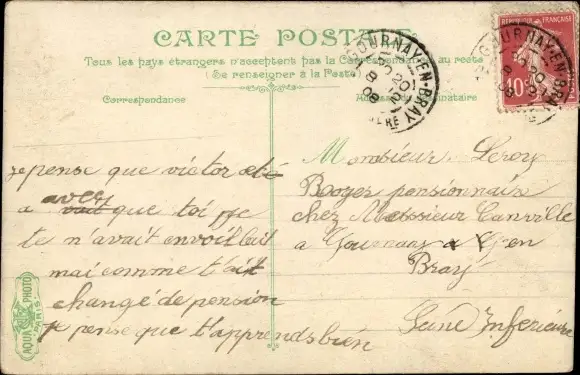 CARTE POSTALE
Tous les pays étrangers n'acceptent pas la Correspondance au recto
(Se renseigner à la Poste)
Correspondance
REPUBLIQUE FRANÇAISE
10c
GOURNAY-EN-BRAY
GOURNAY-EN-BRAY
je pense que victor été
a avec que toi
te n'avait
mai comme t'ait
changé de pension
je pense que t'apprends bien
Monsieur Leroy
pensionnaire
chez Messieur Canville
a Gournay en
Bray
Seine Inferieure
AQUA PHOTO
PARIS